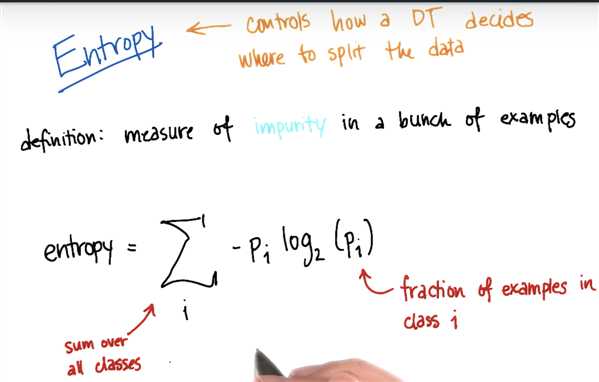 Entropy
controls how a DT decides
where to split the data
definition: measure of impurity in a bunch of examples
entropy = ∑ - pᵢ log₂ (pᵢ)
i
fraction of examples in
class i
sum over
all classes